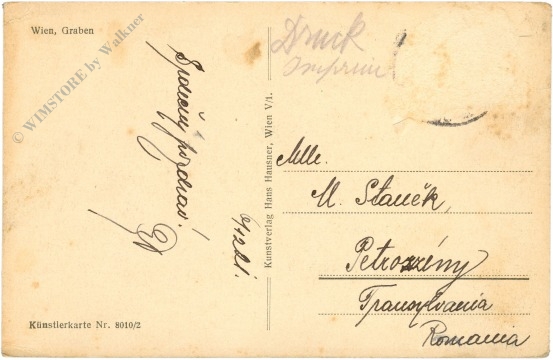 Wien, Graben
© WIMSTORE by Walkner
Srdečný pozdrav!
Künstlerkarte Nr. 8010/2
Kunstverlag Hans Hausner, Wien V/1.
Druck
Imprimé
Mlle.
M. Staněk,
Petrozsény
Transylvania
Romania